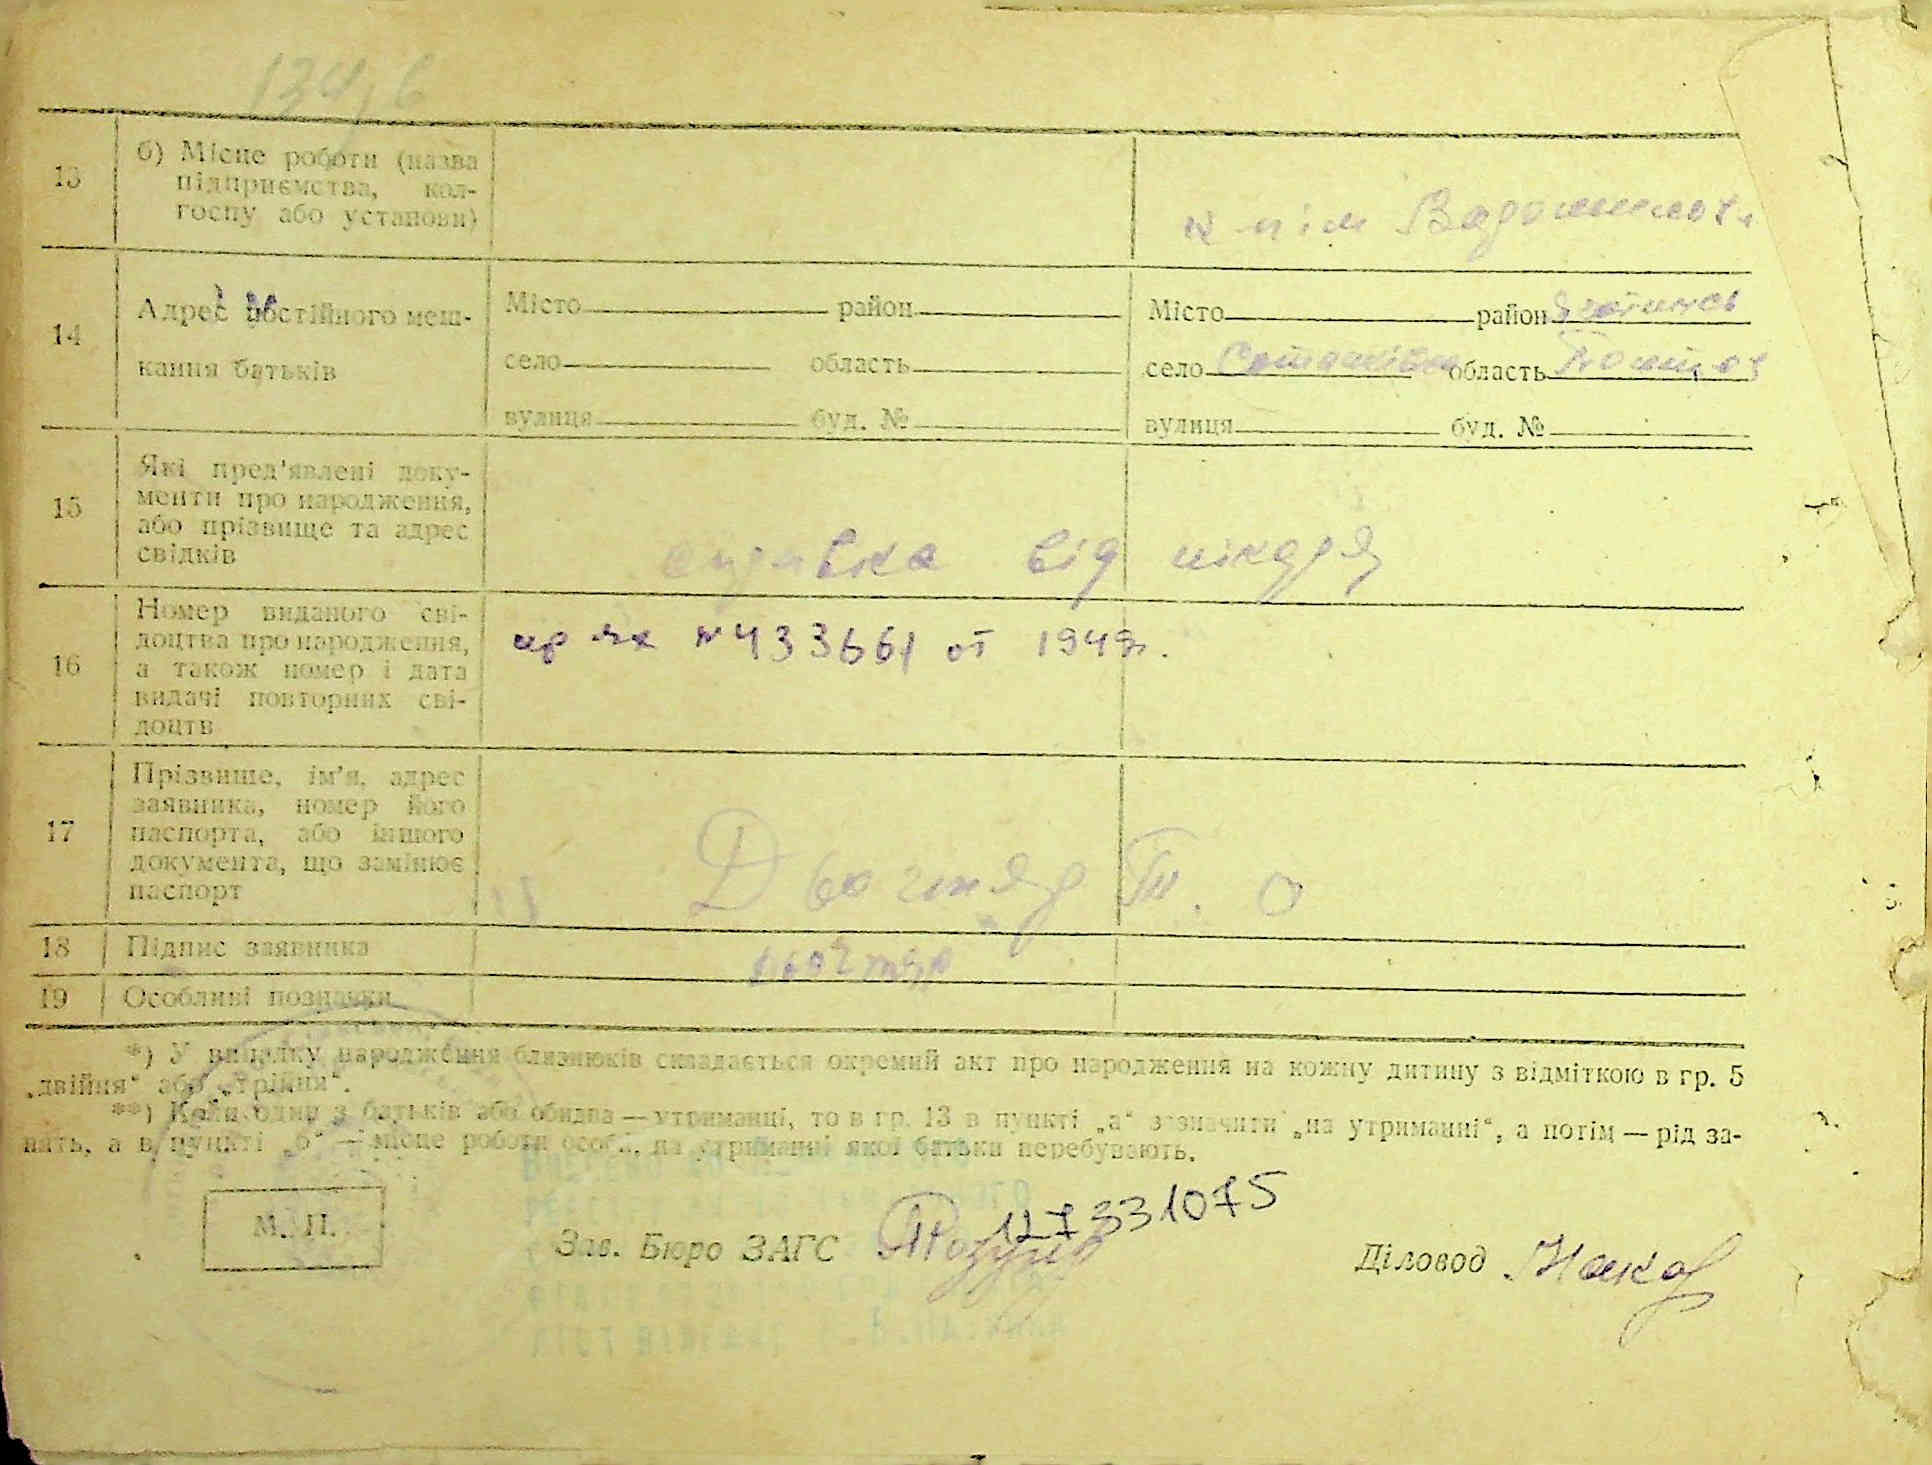 134,6
13 б) Місце роботи (назва
підприємства, кол-
госпу або установи)
к п ім Ворошилова
14 Адрес постійного меш-
кання батьків
Місто район Місто район
село область село область
вулиця буд. № вулиця буд. №
15 Які пред'явлені доку-
менти про народження,
або прізвище та адрес
свідків
справка від лікаря
16 Номер виданого сві-
доцтва про народження,
а також номер і дата
видачі повторних сві-
доцтв
№ 433661 от 1949г.
17 Прізвище, ім'я, адрес
заявника, номер його
паспорта, або іншого
документа, що замінює
паспорт
18 Підпис заявника
19 Особливі позначки
*) У випадку народження близнюків складається окремий акт про народження на кожну дитину з відміткою в гр. 5
„двійня“ або „трійня“.
**) Коли один з батьків або обидва — утриманці, то в гр. 13 в пункті „а“ зазначити „на утриманні“, а потім — рід за-
нять, а в пункті „б“ — місце роботи особи, на утриманні якої батьки перебувають.
127331075
М. П.
Зав. Бюро ЗАГС
Діловод